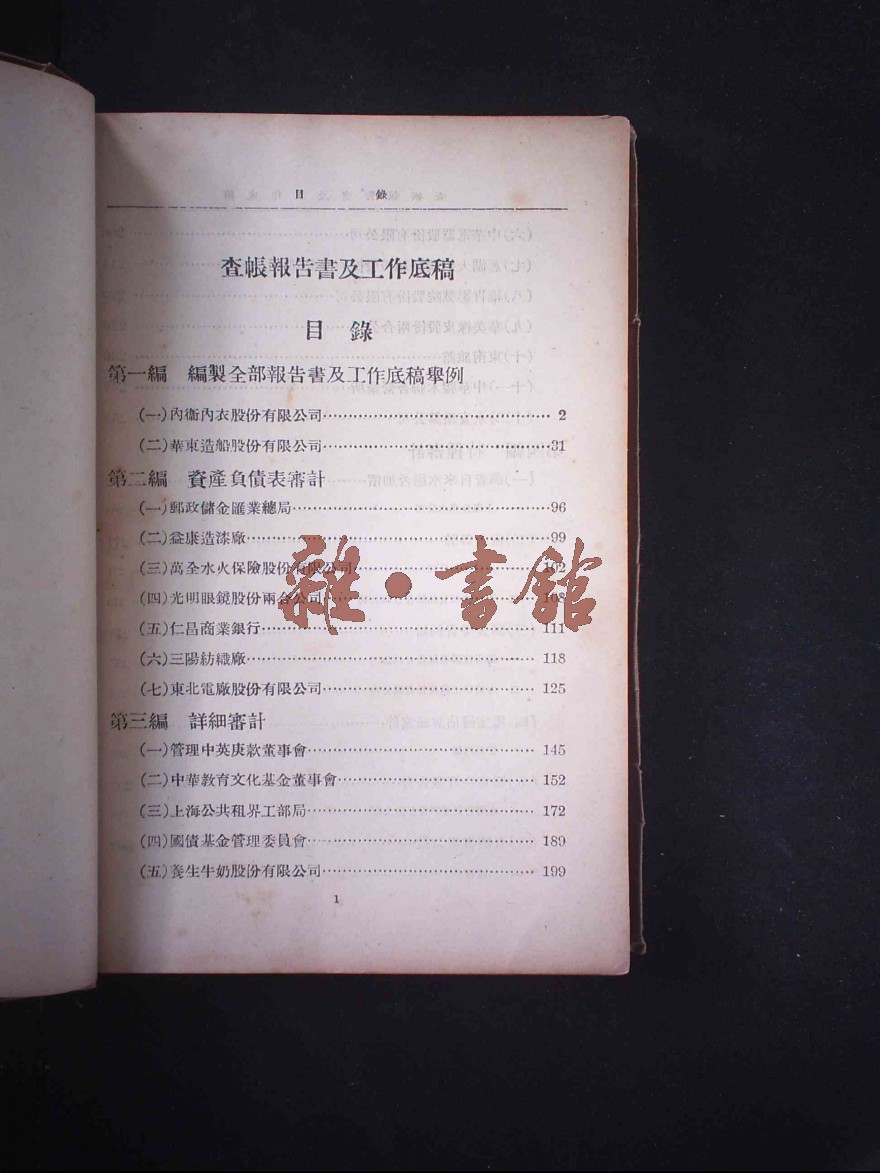 目錄
查帳報告書及工作底稿
目錄
第一編 編製全部報告書及工作底稿舉例
(一)內衞內衣股份有限公司…………2
(二)華東造船股份有限公司…………31
第二編 資產負債表審計
(一)郵政儲金匯業總局…………96
(二)益康造漆廠…………99
(三)萬全水火保險股份有限公司…………102
(四)光明眼鏡股份兩合公司…………108
(五)仁昌商業銀行…………111
(六)三陽紡織廠…………118
(七)東北電廠股份有限公司…………125
第三編 詳細審計
(一)管理中英庚款董事會…………145
(二)中華教育文化基金董事會…………152
(三)上海公共租界工部局…………172
(四)國債基金管理委員會…………189
(五)養生牛奶股份有限公司…………199
1
雜·書館